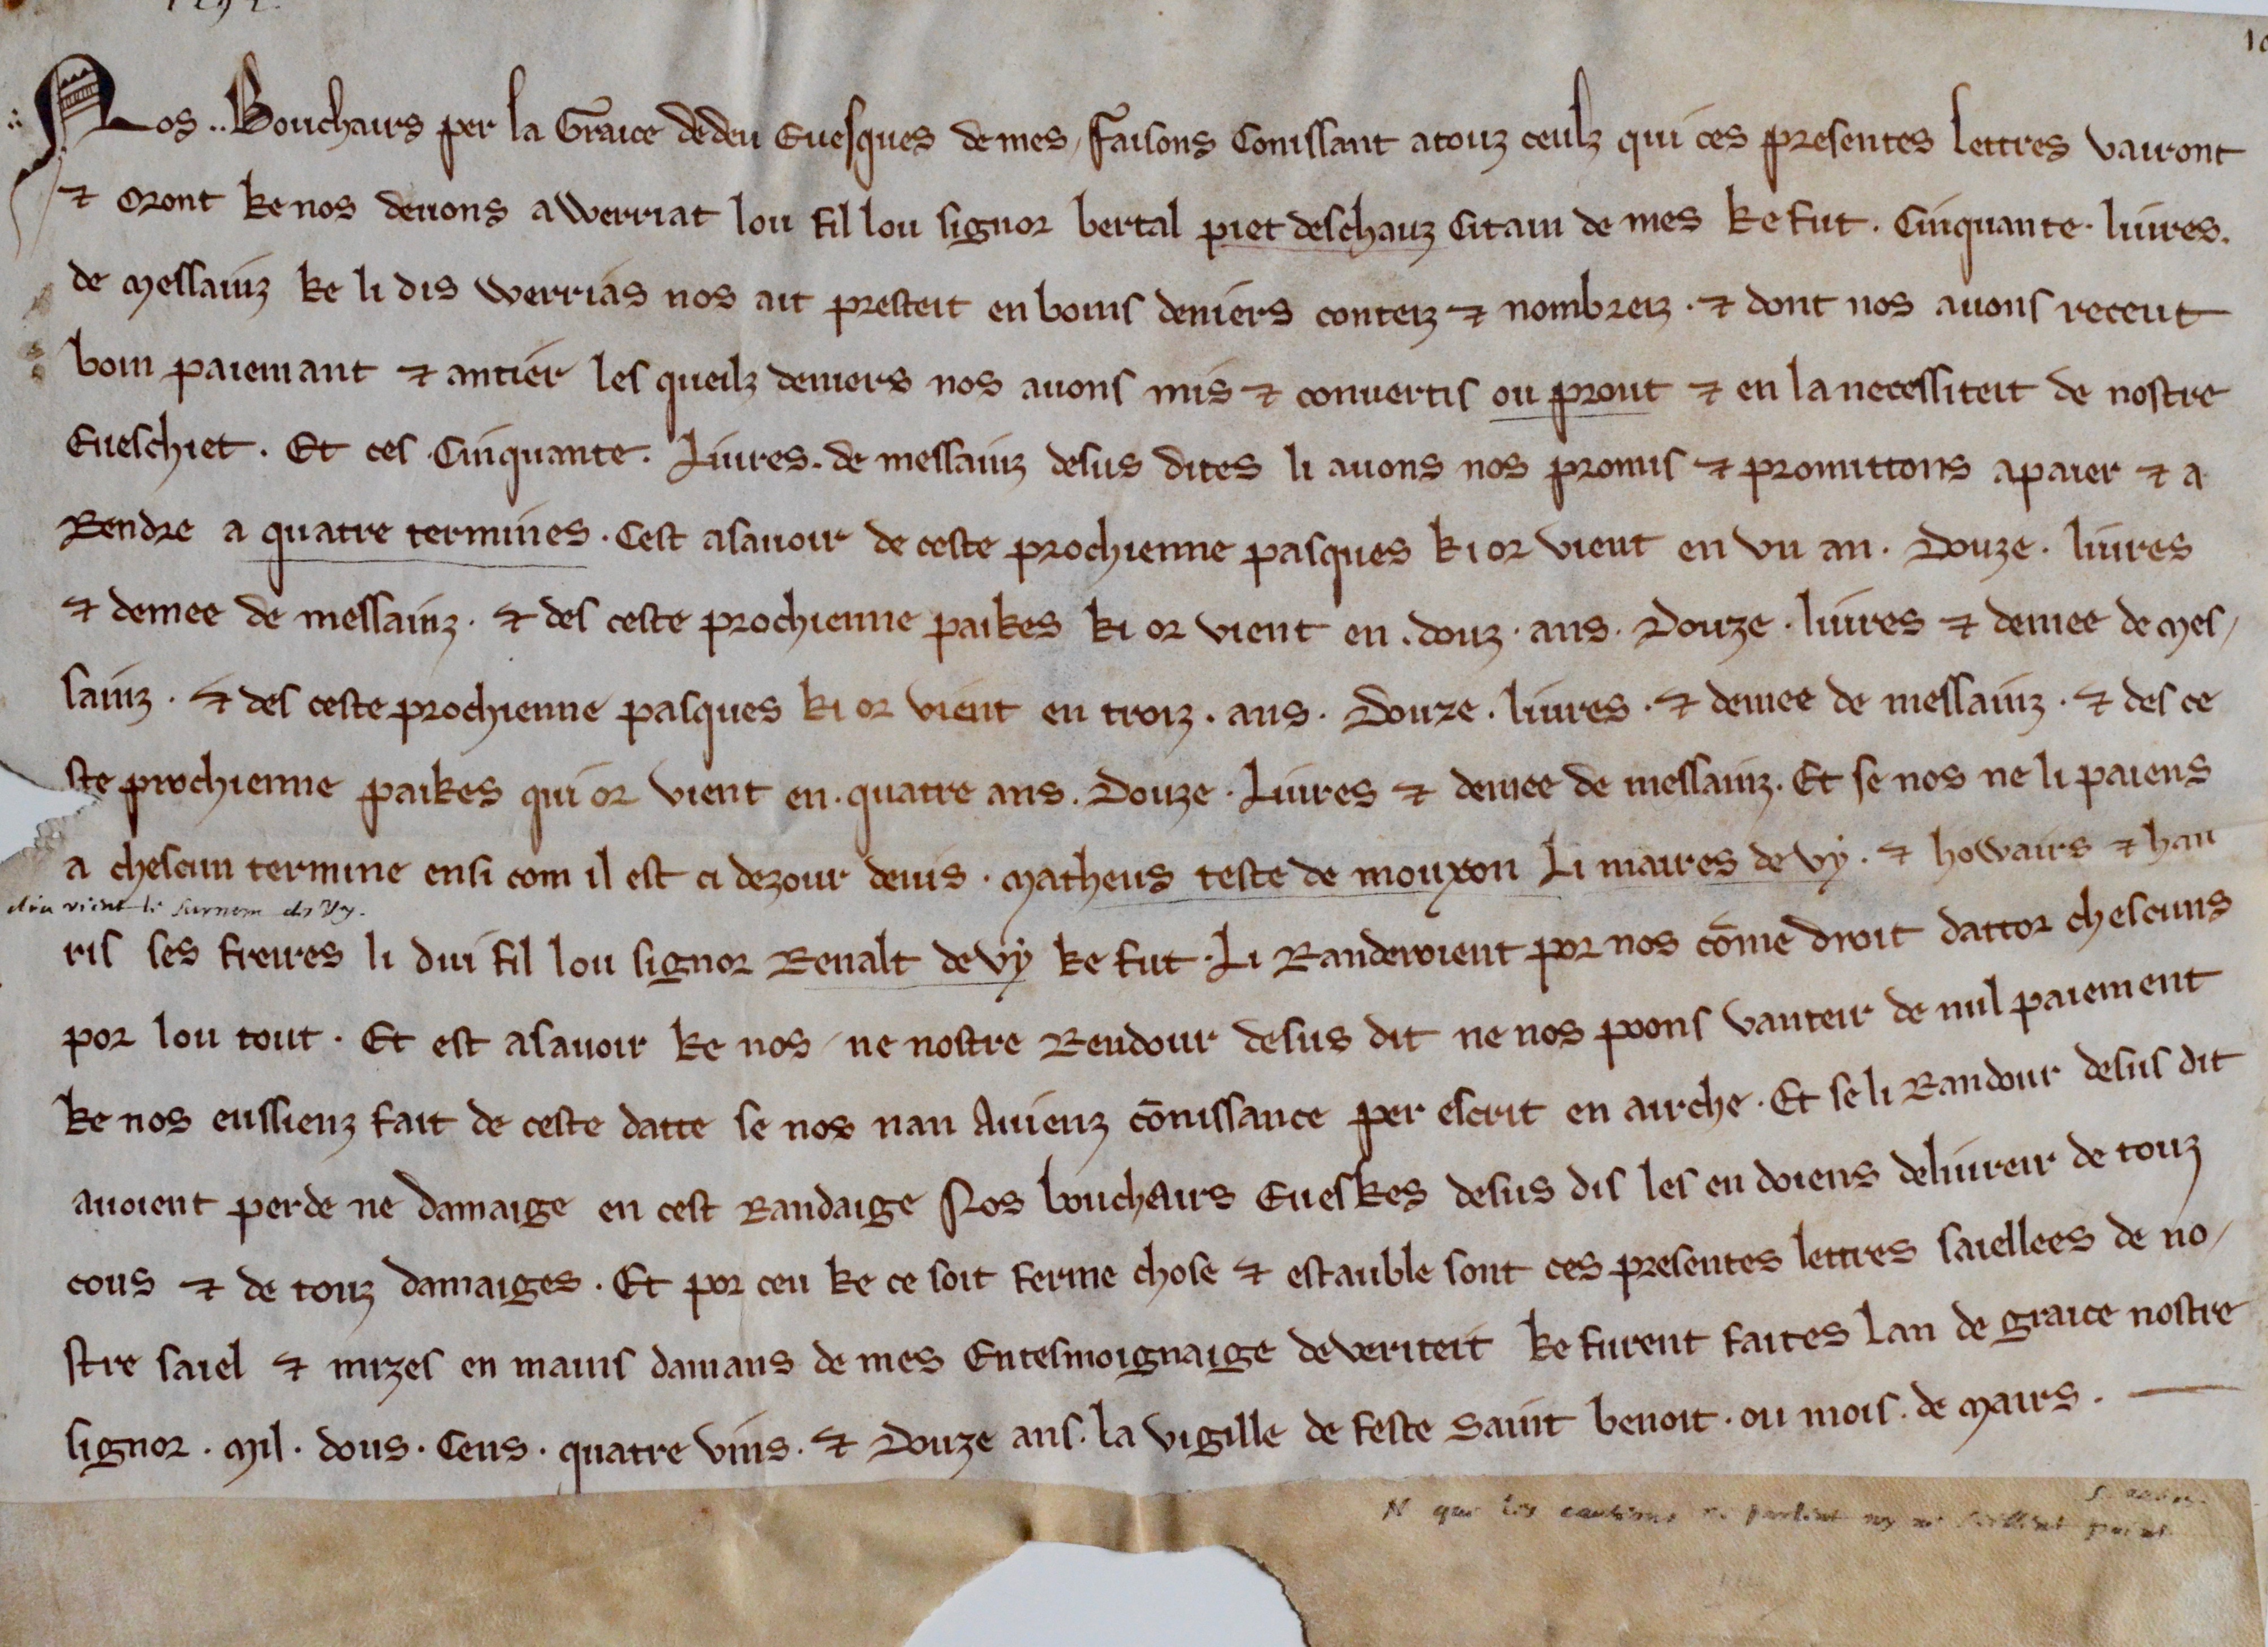 Nos .. Bouchairs per la Graice de deu Euesques de mes, faisons Conissant a touz ceulz qui ces presentes lettres vairont
⁊ oront ke nos deuons a Werriat lou fil lou signor bertal piet deschauz Citain de mes ke fut . Cinquante . liures .
de messainz ke li dis Werrias nos ait presteit en boins deniers conteiz ⁊ nombreiz . ⁊ dont nos auons receut
boin paiemant ⁊ antier les queilz deniers nos auons mis ⁊ conuertis ou prout ⁊ en la necessiteit de nostre
Eueschiet . Et ces . Cinquante . Liures . de messainz desus dites li auons nos promis ⁊ promittons a paier ⁊ a
Rendre a quatre termines . Cest a sauoir de ceste prochienne pasques ki or vient en vn an . Douze . liures
⁊ demee de messainz . ⁊ des ceste prochienne paikes ki or vient en . douz . ans . Douze . liures ⁊ demee de mes/
sainz . ⁊ des ceste prochienne pasques ki or vient en troiz . ans . Douze . liures . ⁊ demee de messainz . ⁊ des ce
ste prochienne paikes qui or vient en . quatre ans . Douze . Liures ⁊ demee de messainz . Et se nos ne li paiens
a chescun termine ensi com il est ci dezour deuis . Matheus teste de mouxon Li maires de vy . ⁊ howairs ⁊ han
d'ou vient le surnom de Vy .
ris ses freires li dui fil lou signor Renalt de vy ke fut . Li Randeroient por nos cōme droit dattor chescuns
por lou tout . Et est a sauoir ke nos / ne nostre Rendour desus dit ne nos poons vanteir de nul paiement
ke nos eussienz fait de ceste datte se nos nan Auienz cōnissance per escrit en airche . Et se li Randour desus dit
auoient perde ne damaige en cest Randaige Nos bouchairs Eueskes desus dis les en doiens deliureir de touz
cous ⁊ de touz damaiges . Et por ceu ke ce soit ferme chose ⁊ estauble sont ces presentes lettres saiellees de no/
stre saiel ⁊ mizes en mains damans de mes En tesmoignaige de veriteit ke furent faites lan de graice nostre
signor . Mil . dous . Cens . quatre vins . ⁊ Douze ans . la vigille de feste saint benoit . ou mois . de Mairs .
N que les cautions ne parlent ny ne scellent point